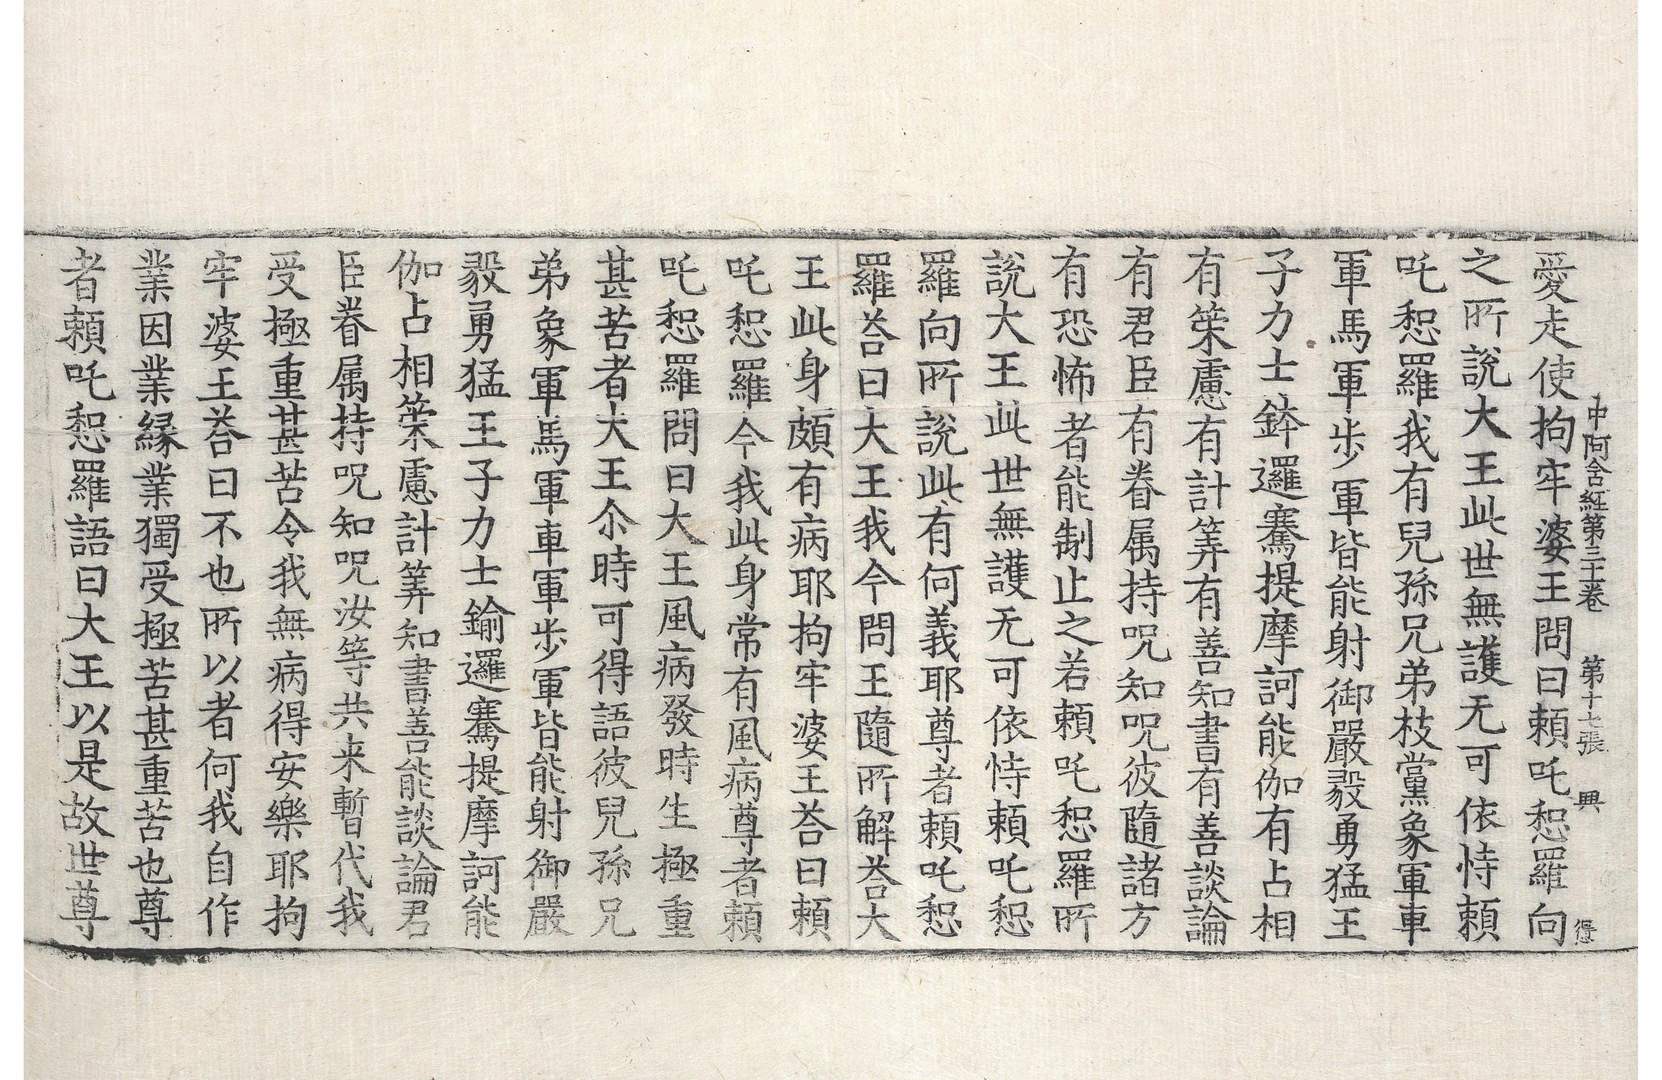 中阿含経第三十卷 第十七張 興
愛走使拘牢婆王問曰頼吒惒羅向
之所說大王此世無護无可依恃頼
吒惒羅我有兒孫兄弟枝黨象軍車
軍馬軍步軍皆能射御嚴毅勇猛王
子力士鉢邏騫提摩訶能伽有占相
有策慮有計筭有善知書有善談論
有君臣有眷属持呪知呪彼隨諸方
有恐怖者能制止之若頼吒惒羅所
說大王此世無護无可依恃頼吒惒
羅向所說此有何義耶尊者頼吒惒
羅荅曰大王我今問王隨所解荅大
王此身頗有病耶拘牢婆王荅曰頼
吒惒羅今我此身常有風病尊者頼
吒惒羅問曰大王風病發時生極重
甚苦者大王尒時可得語彼兒孫兄
弟象軍馬軍車軍步軍皆能射御嚴
毅勇猛王子力士鍮邏騫提摩訶能
伽占相策慮計筭知書善能談論君
臣眷属持呪知呪汝等共来暫代我
受極重甚苦令我無病得安樂耶拘
牢婆王荅曰不也所以者何我自作
業因業縁業獨受極苦甚重苦也尊
者頼吒惒羅語曰大王以是故世尊